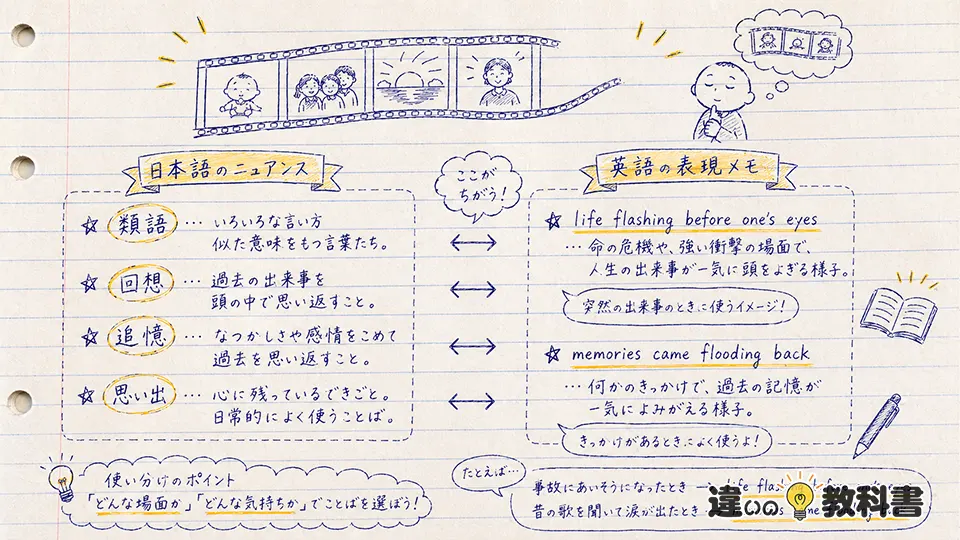 日本語のニュアンス
☆ 類語 … いろいろな言い方
似た意味をもつ言葉たち。
☆ 回想 … 過去の出来事を
頭の中で思い返すこと。
☆ 追憶 … なつかしさや感情をこめて
過去を思い返すこと。
☆ 思い出 … 心に残っているできごと。
日常的によく使うことば。
ここが
ちがう!
英語の表現メモ
☆ life flashing before one's eyes
… 命の危機や、強い衝撃の場面で、
人生の出来事が一気に頭をよぎる様子。
突然の出来事のときに使うイメージ!
☆ memories came flooding back
… 何かのきっかけで、過去の記憶が
一気によみがえる様子。
きっかけがあるときによく使うよ!
使い分けのポイント
「どんな場面か」「どんな気持ちか」でことばを選ぼう!
たとえば…
事故にあいそうになったとき
昔の歌を聞いて涙が出たとき
違いの教科書